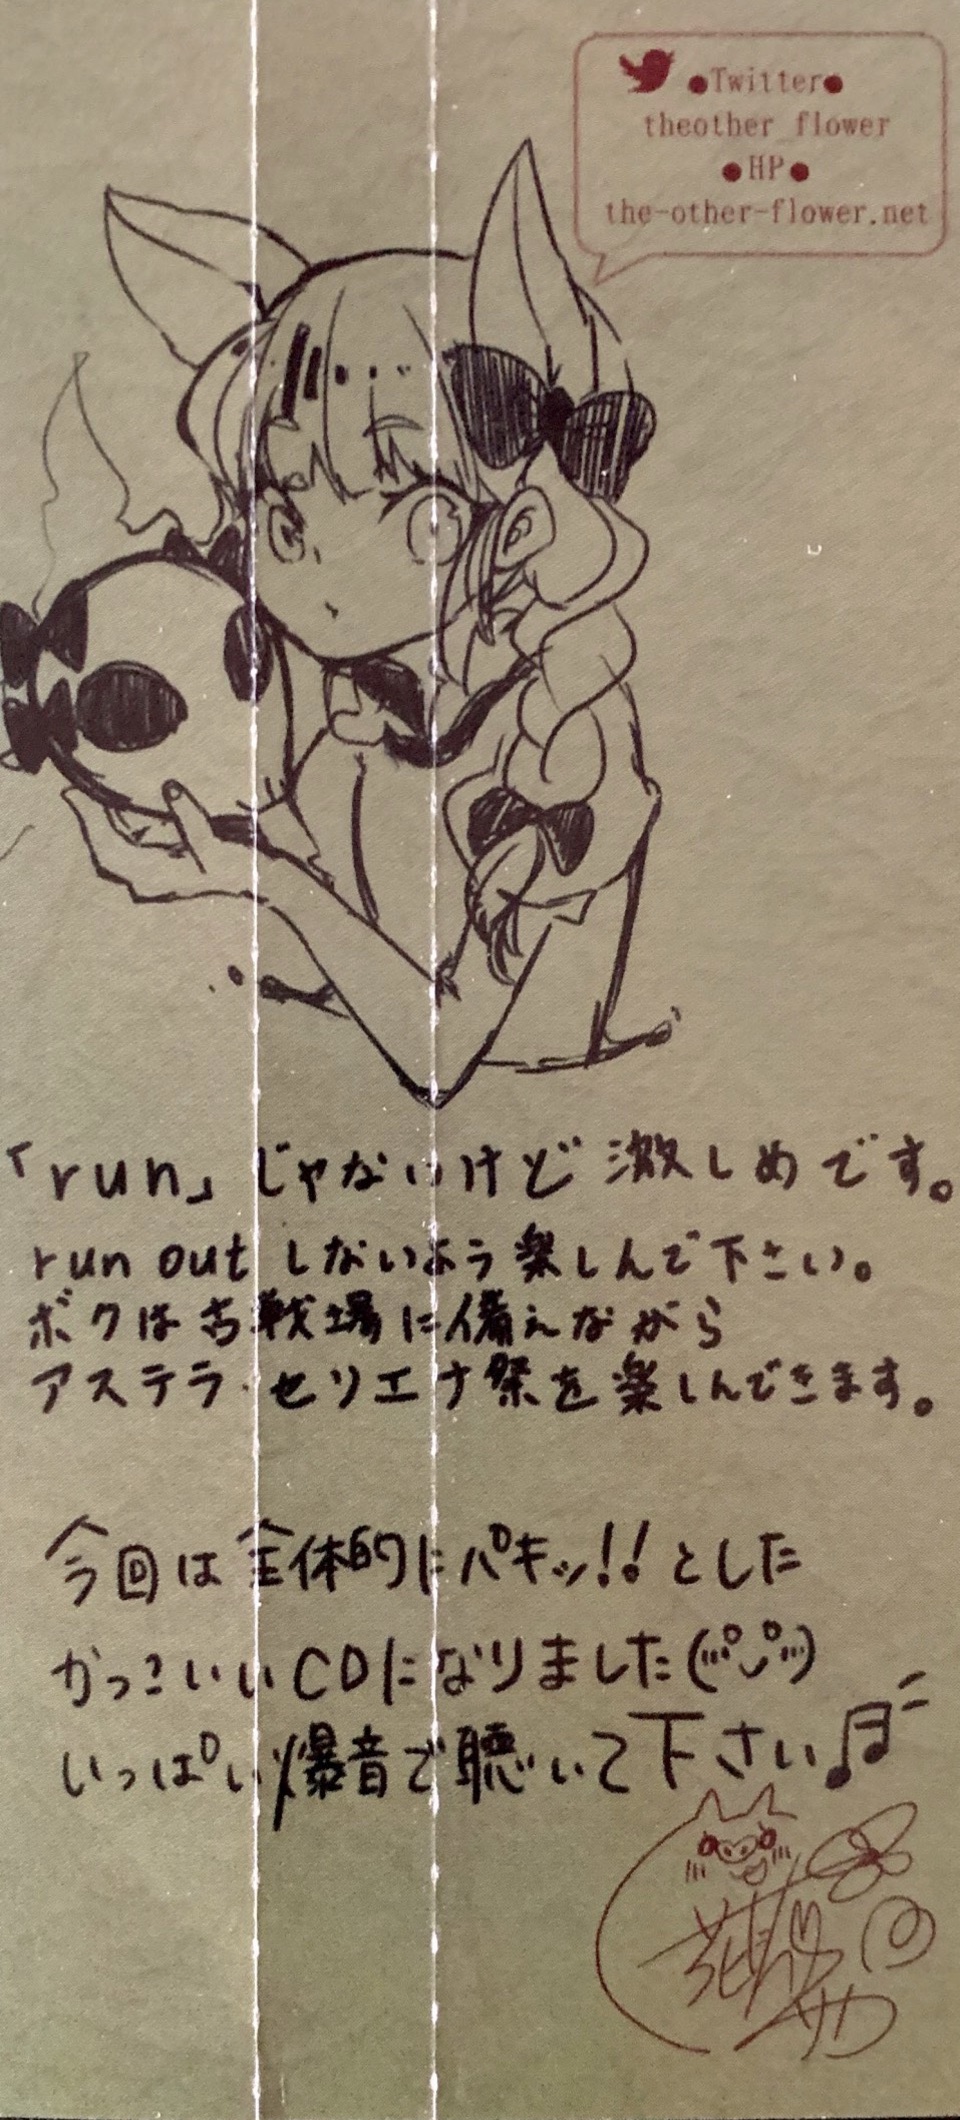 ●Twitter●
theother_flower
●HP●
the-other-flower.net
「run」じゃないけど激しめです。
run out しないよう楽しんで下さい。
ボクは古戦場に備えながら
アステラ・セリエナ祭を楽しんできます。
今回は全体的にパキッ!!とした
かっこいいCDになりました(¨゜ᴗ゜¨)
いっぱい爆音で聴いて下さい♫